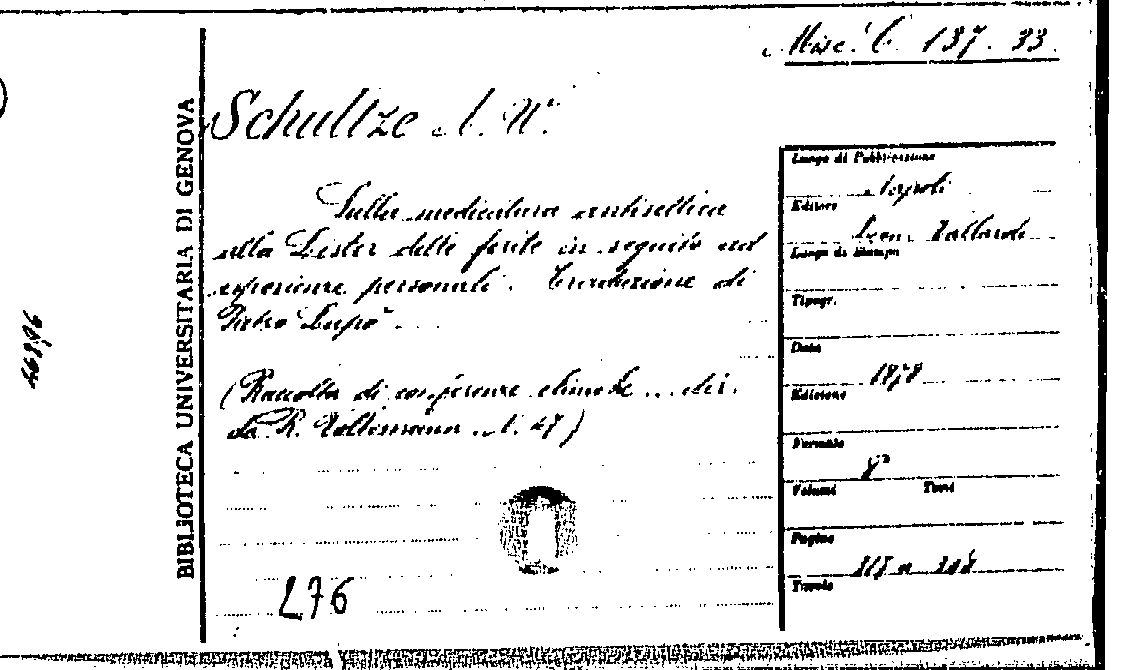 Misc. C. 137. 33.
BIBLIOTECA UNIVERSITARIA DI GENOVA
Schultze A. W.
Sulla medicatura antisettica
alla Lister delle ferite in seguito ad
esperienze personali. Traduzione di
Pietro Lupò.
(Raccolta di conferenze cliniche ... dir.
da R. Volkmann. N. 47)
276
Luogo di Pubblicazione
Napoli
Editore
Leon. Vallardi
Luogo di Stampa
Tipogr.
Data
1878
Edizione
Formato
8°
Volumi Tomi
Pagine
Tavole